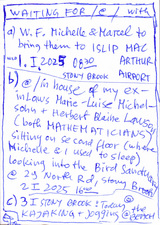 WAITING FOR /@/ with
a) W.F. Michelle & Marcel to
bring them to ISLIP MAC
ARTHUR
1. I. 2025 0830
STONY BROOK AIRPORT
b) @ / in house of my ex-
in Laws Marie-Louise Michel-
sohn + Herbert Blaine Lawson
(both MATHEMATICIANS)
Sitting on second floor (where
Michelle & I used to sleep)
looking into the Bird Sanctuary
@ 29 North Rd, Stony Brook
2 I 2025 16
c) 3 I STONY BROOK: Today @
KAJAKING + Jogging @ the